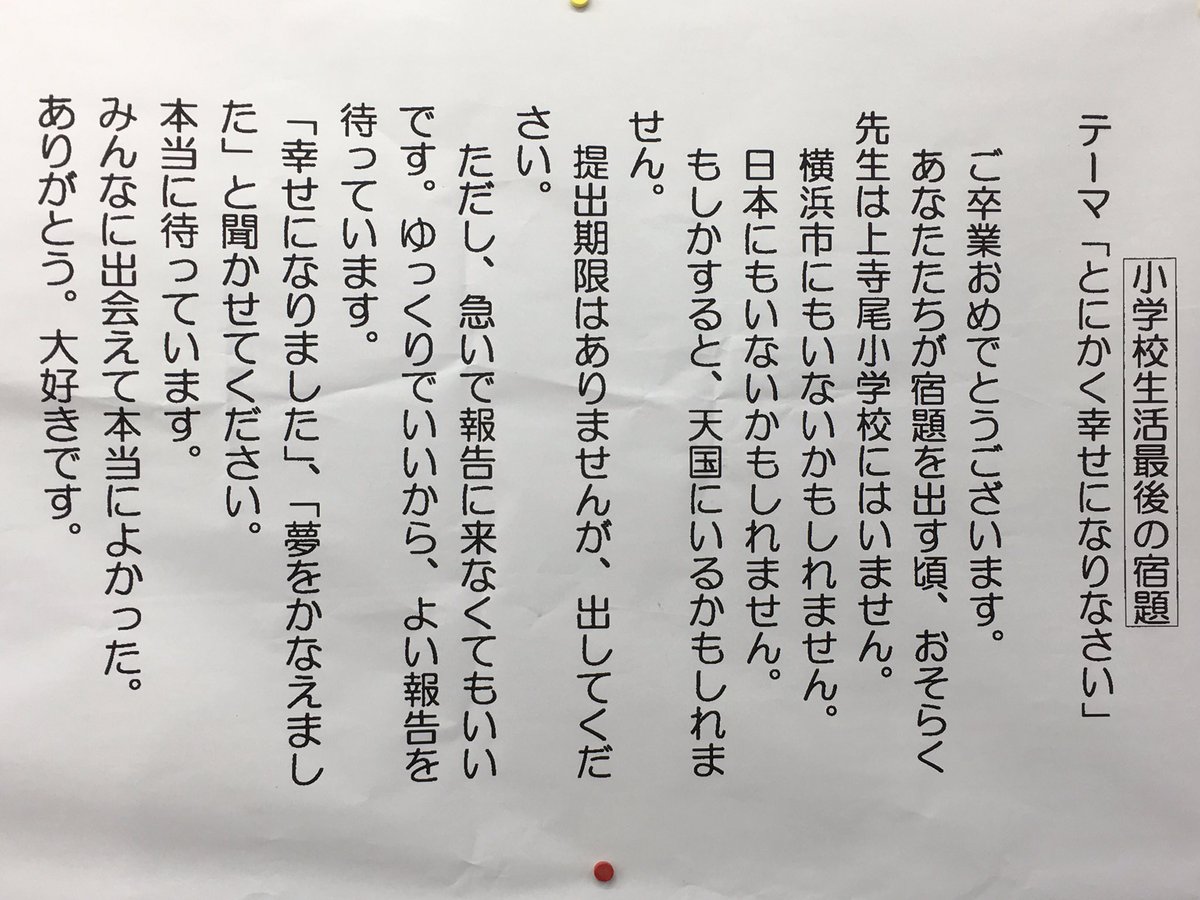 小学校生活最後の宿題
テーマ「とにかく幸せになりなさい」
ご卒業おめでとうございます。
あなたたちが宿題を出す頃、おそらく
先生は上寺尾小学校にはいません。
横浜市にもいないかもしれません。
日本にもいないかもしれません。
もしかすると、天国にいるかもしれま
せん。
提出期限はありませんが、出してくだ
さい。
ただし、急いで報告に来なくてもいい
です。ゆっくりでいいから、よい報告を
待っています。
「幸せになりました」、「夢をかなえまし
た」と聞かせてください。
本当に待っています。
みんなに出会えて本当によかった。
ありがとう。大好きです。